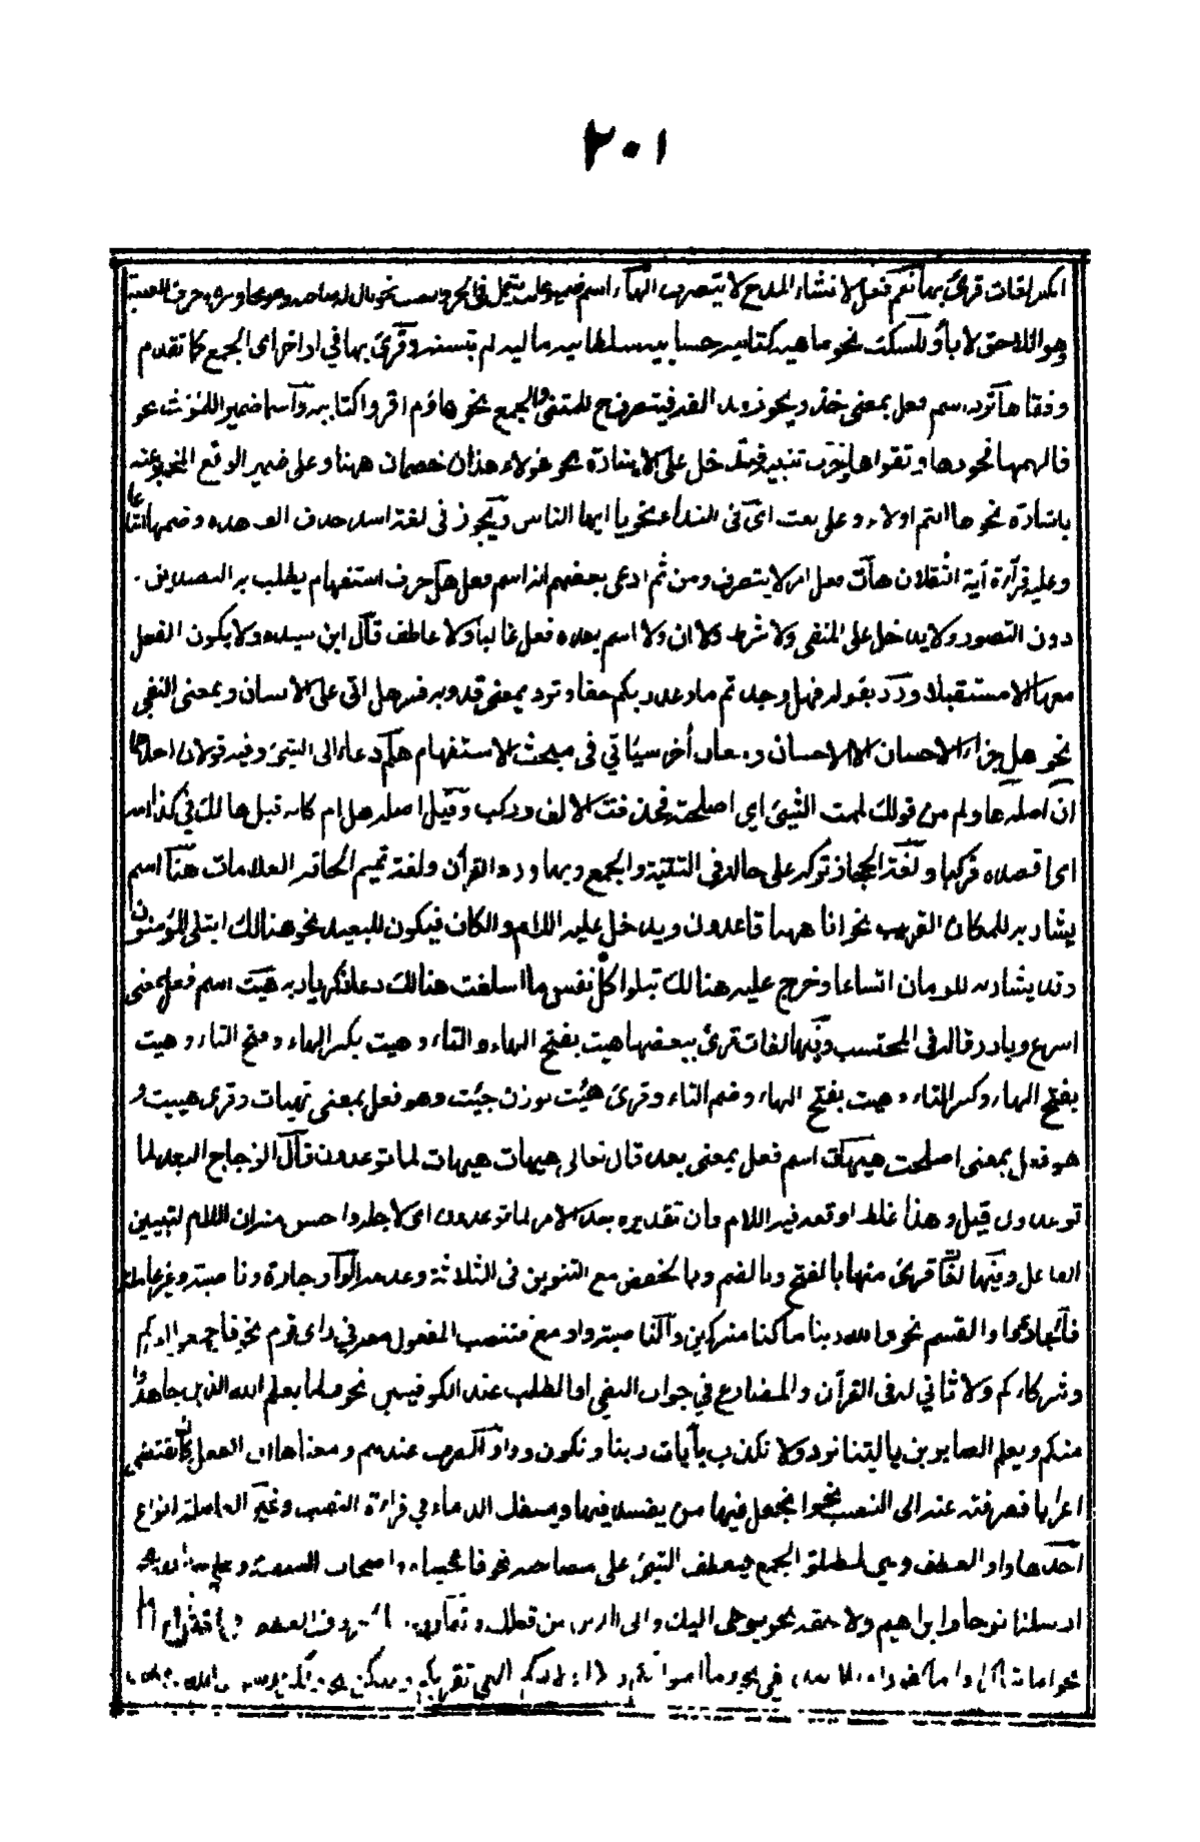 ٢٠١
لغات قرئ بها نعم فعل لانشاء المدح لا يتصرف الهاء اسم ضمير غائب يستعمل في الجر والنصب نحو قال له صاحبه وهو يحاوره وحرف الغيبة
وهو اللاحق لايا وللسكت نحو ماهيه كتابيه حسابيه سلطانيه ماليه لم يتسنه وقرئ بها في اواخر اى الجمع كما تقدم
وقفا هآ ترد اسم فعل بمعنى خذ ويجوز مد الفه فيتصرف ح للمثنى والجمع نحو هاؤم اقروا كتابيه وآسما ضمير اللمؤنث نحو
فالهمها فجورها وتقواها وحرف تنبيه فتدخل على الاشارة نحو هؤلاء هذان خصمان ههنا وعلى ضمير الرفع المخبر عنه
باشارة نحو ها انتم اولاء وعلى نعت اى فى النداء نحو يا ايها الناس ويجوز فى لغة اسد حذف الف هذه وضمها اتباعا
وعليه قرآءة آية الثقلان هآت فعل امر لا يتصرف ومن ثم ادعى بعضهم انه اسم فعل هل حرف استفهام يطلب به التصديق
دون التصور ولا يدخل على المنفى ولا شرط ولا ان ولا اسم بعده فعل غالبا ولا عاطف قآل ابن سيده ولا يكون الفعل
معها الا مستقبلا ورد بقوله فهل وجدتم ما وعد ربكم حقا وترد بمعنى قد وبه فسر هل اتى على الانسان وبمعنى النفى
نحو هل جزاء الاحسان الا الاحسان ومعان أخر سيأتي فى مبحث الاستفهام هلم دعاء الى الشئ وفيه قولان احدهما
ان اصله ها ولم من قولك لممت الشيئ اي اصلحته فحذفت الالف وركب وقيل اصله هل ام كانه قيل هل لك في كذا امه
اى اقصده فركبا ولغة الحجاز تركه على حاله فى التثنية والجمع وبها ورد القرآن ولغة تميم الحاقه العلامات هنآ اسم
يشار به للمكان القريب نحو انا ههنا قاعدون ويدخل عليه اللام والكاف فيكون للبعيد نحو هنالك ابتلى المؤمنون
وقد يشار به للزمان اتساعا وخرج عليه هنالك تبلوا كل نفس ما اسلفت هنالك دعا زكريا ربه هيت اسم فعل بمعنى
اسرع وبادر قاله فى المحتسب وفيها لغات قرئ ببعضها هيت بفتح الهاء والتاء وهيت بكسر الهاء وفتح التاء وهيت
بفتح الهاء وكسر التاء وهيت بفتح الهاء وضم التاء وقرئ هئت بوزن جئت وهو فعل بمعنى تهيات وقرى هييت و
هو فعل بمعنى اصلحت هيهات اسم فعل بمعنى بعد قال تعالى هيهات هيهات لما توعدون قآل الزجاج البعد لما
توعدون قيل وهذا غلط اوقعه فيه اللام وان تقديره بعد الامر لما توعدون اى لاجله واحسن منه ان اللام لتبيين
الفاعل وفيها لغا قرئ منها بالفتح وبالضم وبالخفض مع التنوين فى الثلاثة وعدمه الوآو جارة وناصبة وغير عاملة
فالجارة واو القسم نحو والله ربنا ما كنا مشركين والناصبة واو مع فتنصب المفعول معه فى راى قوم نحو فاجمعوا امركم
وشركاءكم ولا ثاني له فى القرآن والمضارع في جواب النفي او الطلب عند الكوفيين نحو ولما يعلم الله الذين جاهدوا
منكم ويعلم الصابرين يا ليتنا نرد ولا نكذب بآيات ربنا ونكون وواو الصرف عندهم ومعناها ان الفعل كان يقتضى
اعرابا فصرفته عنه الى النصب نحو اتجعل فيها من يفسد فيها ويسفك الدماء في قراءة النصب وغير العاملة انواع
احدها واو العطف وهي لمطلق الجمع فتعطف الشئ على مصاحبه نحو فانجيناه واصحاب السفينة وعلى سابقه نحو
ارسلنا نوحا وابراهيم ولاحقه نحو يوحى اليك والى الذين من قبلك